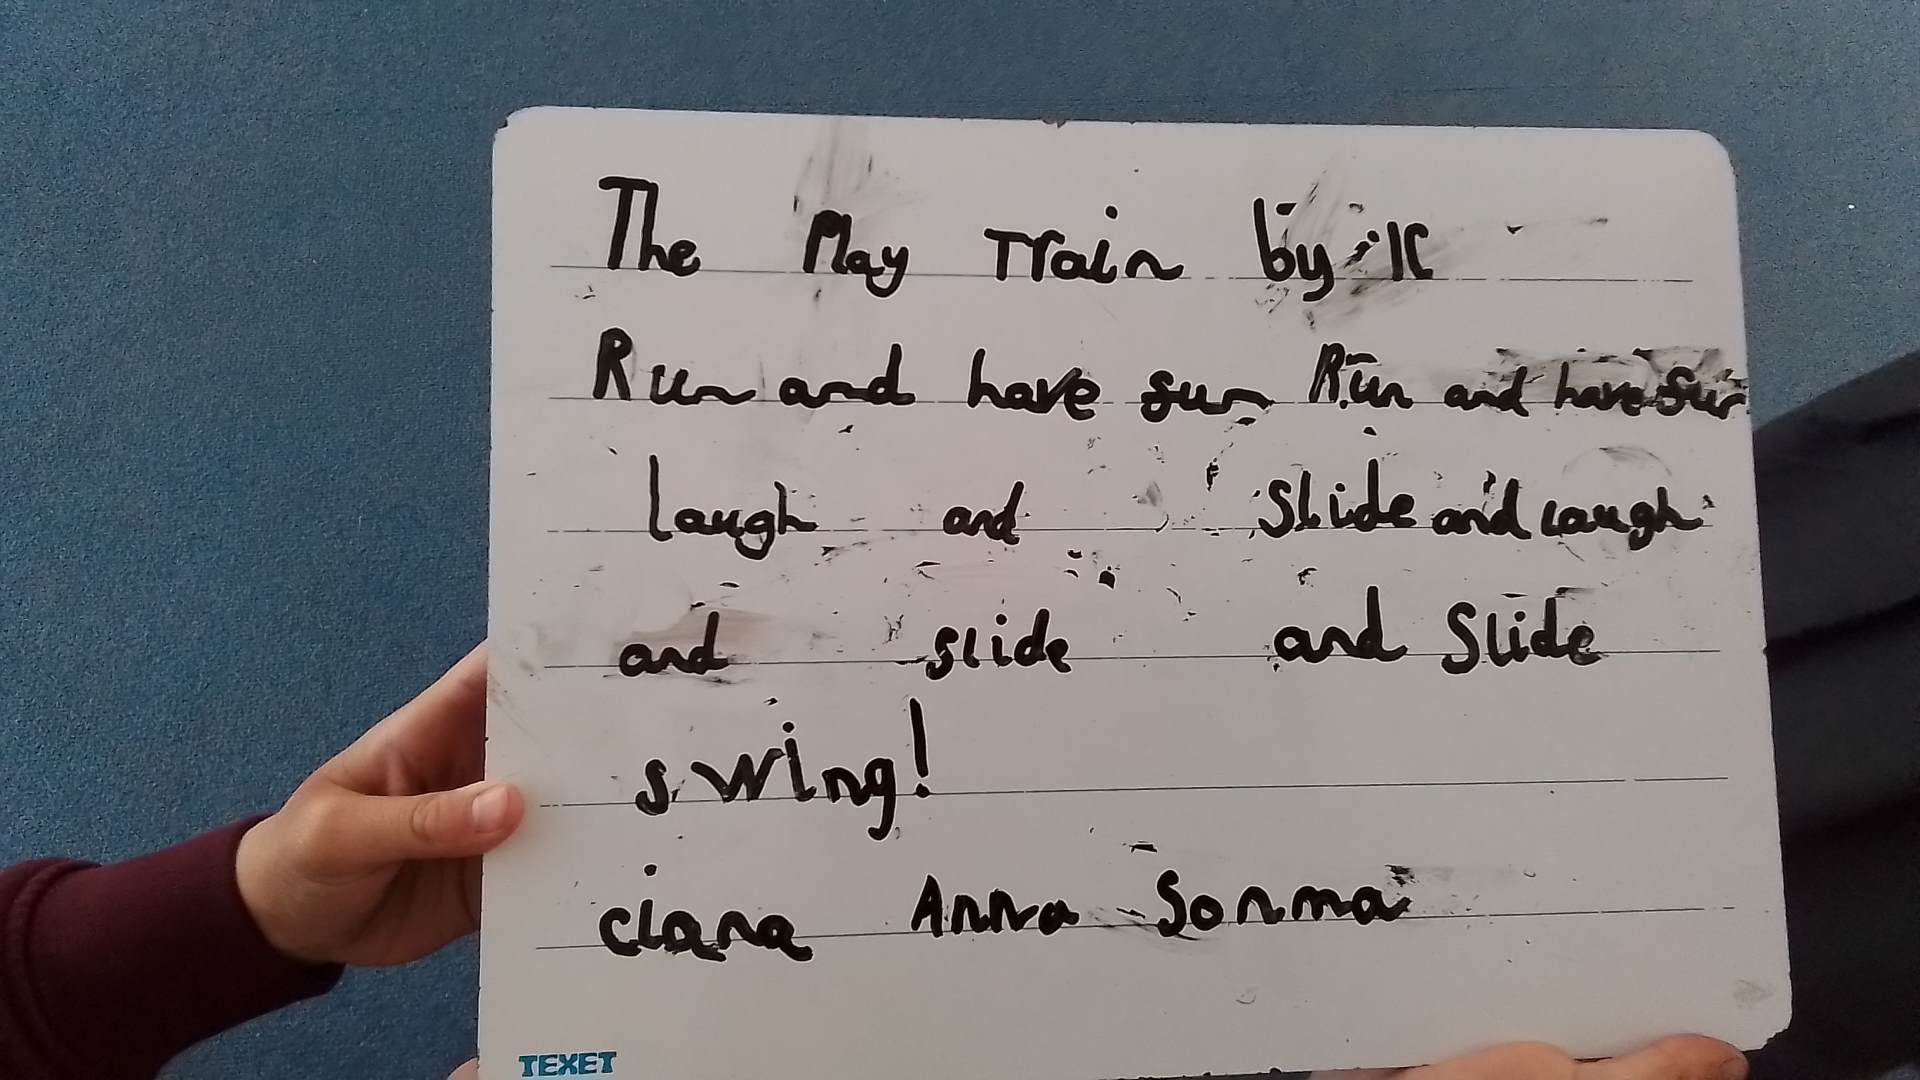 The Play Train by 1C
Run and have fun Run and have fun
laugh and Slide and laugh
and slide and Slide
swing!
ciana Anna Sonma
TEXET